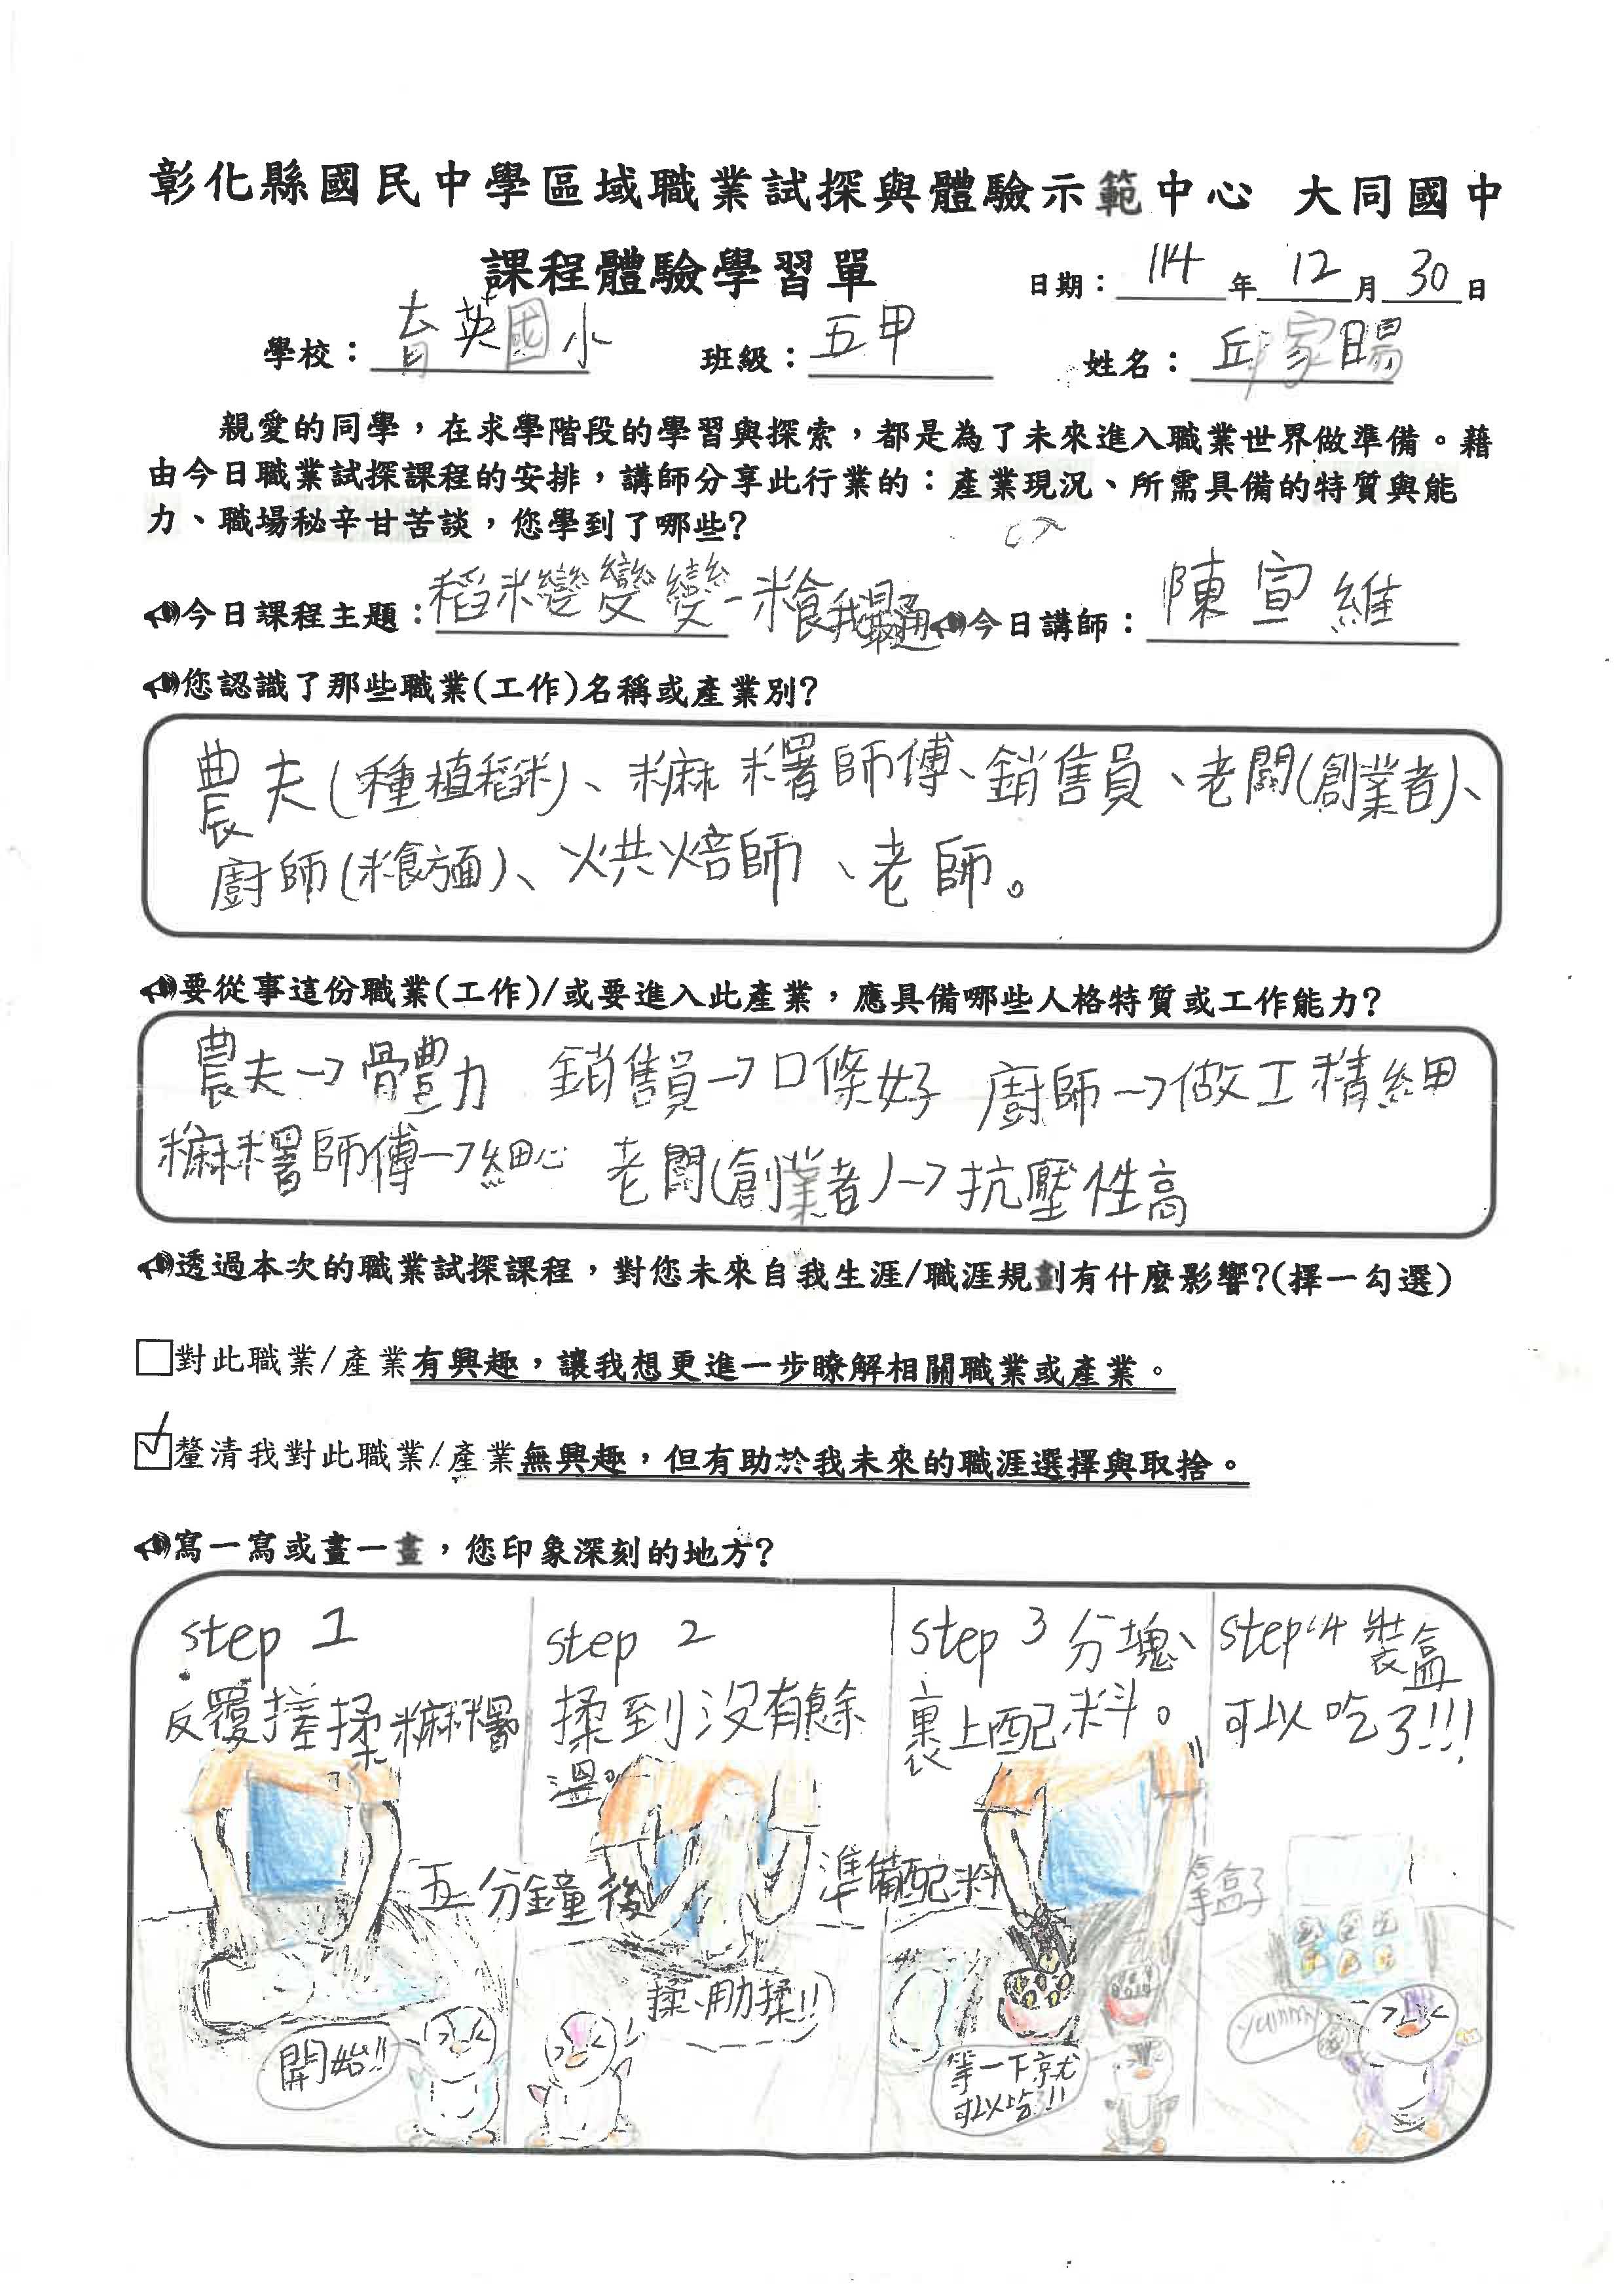 彰化縣國民中學區域職業試探與體驗示範中心 大同國中
課程體驗學習單
日期：114年12月30日
學校：育英國小 班級：五甲 姓名：邱家暘
親愛的同學，在求學階段的學習與探索，都是為了未來進入職業世界做準備。藉
由今日職業試探課程的安排，講師分享此行業的：產業現況、所需具備的特質與能
力、職場秘辛甘苦談，您學到了哪些?
今日課程主題：稻米變變變-米食我最通 今日講師：陳宣維
您認識了那些職業(工作)名稱或產業別?
農夫(種植稻米)、麻糬師傅、銷售員、老闆(創業者)、
廚師(米食方面)、烘焙師、老師。
要從事這份職業(工作)/或要進入此產業，應具備哪些人格特質或工作能力?
農夫→體力 銷售員→口條好 廚師→做工精細
麻糬師傅→細心 老闆(創業者)→抗壓性高
透過本次的職業試探課程，對您未來自我生涯/職涯規劃有什麼影響?(擇一勾選)
□對此職業/產業有興趣，讓我想更進一步瞭解相關職業或產業。
☑釐清我對此職業/產業無興趣，但有助於我未來的職涯選擇與取捨。
寫一寫或畫一畫，您印象深刻的地方?
step 1
反覆搓揉麻糬
五分鐘後
開始!!
step 2
揉到沒有餘
溫。
準備配料
揉、用力揉!!
step 3 分塊、
裹上配料。
拿盒子
等一下就
可以吃!!
step 4 裝盒
可以吃了!!!
yummy